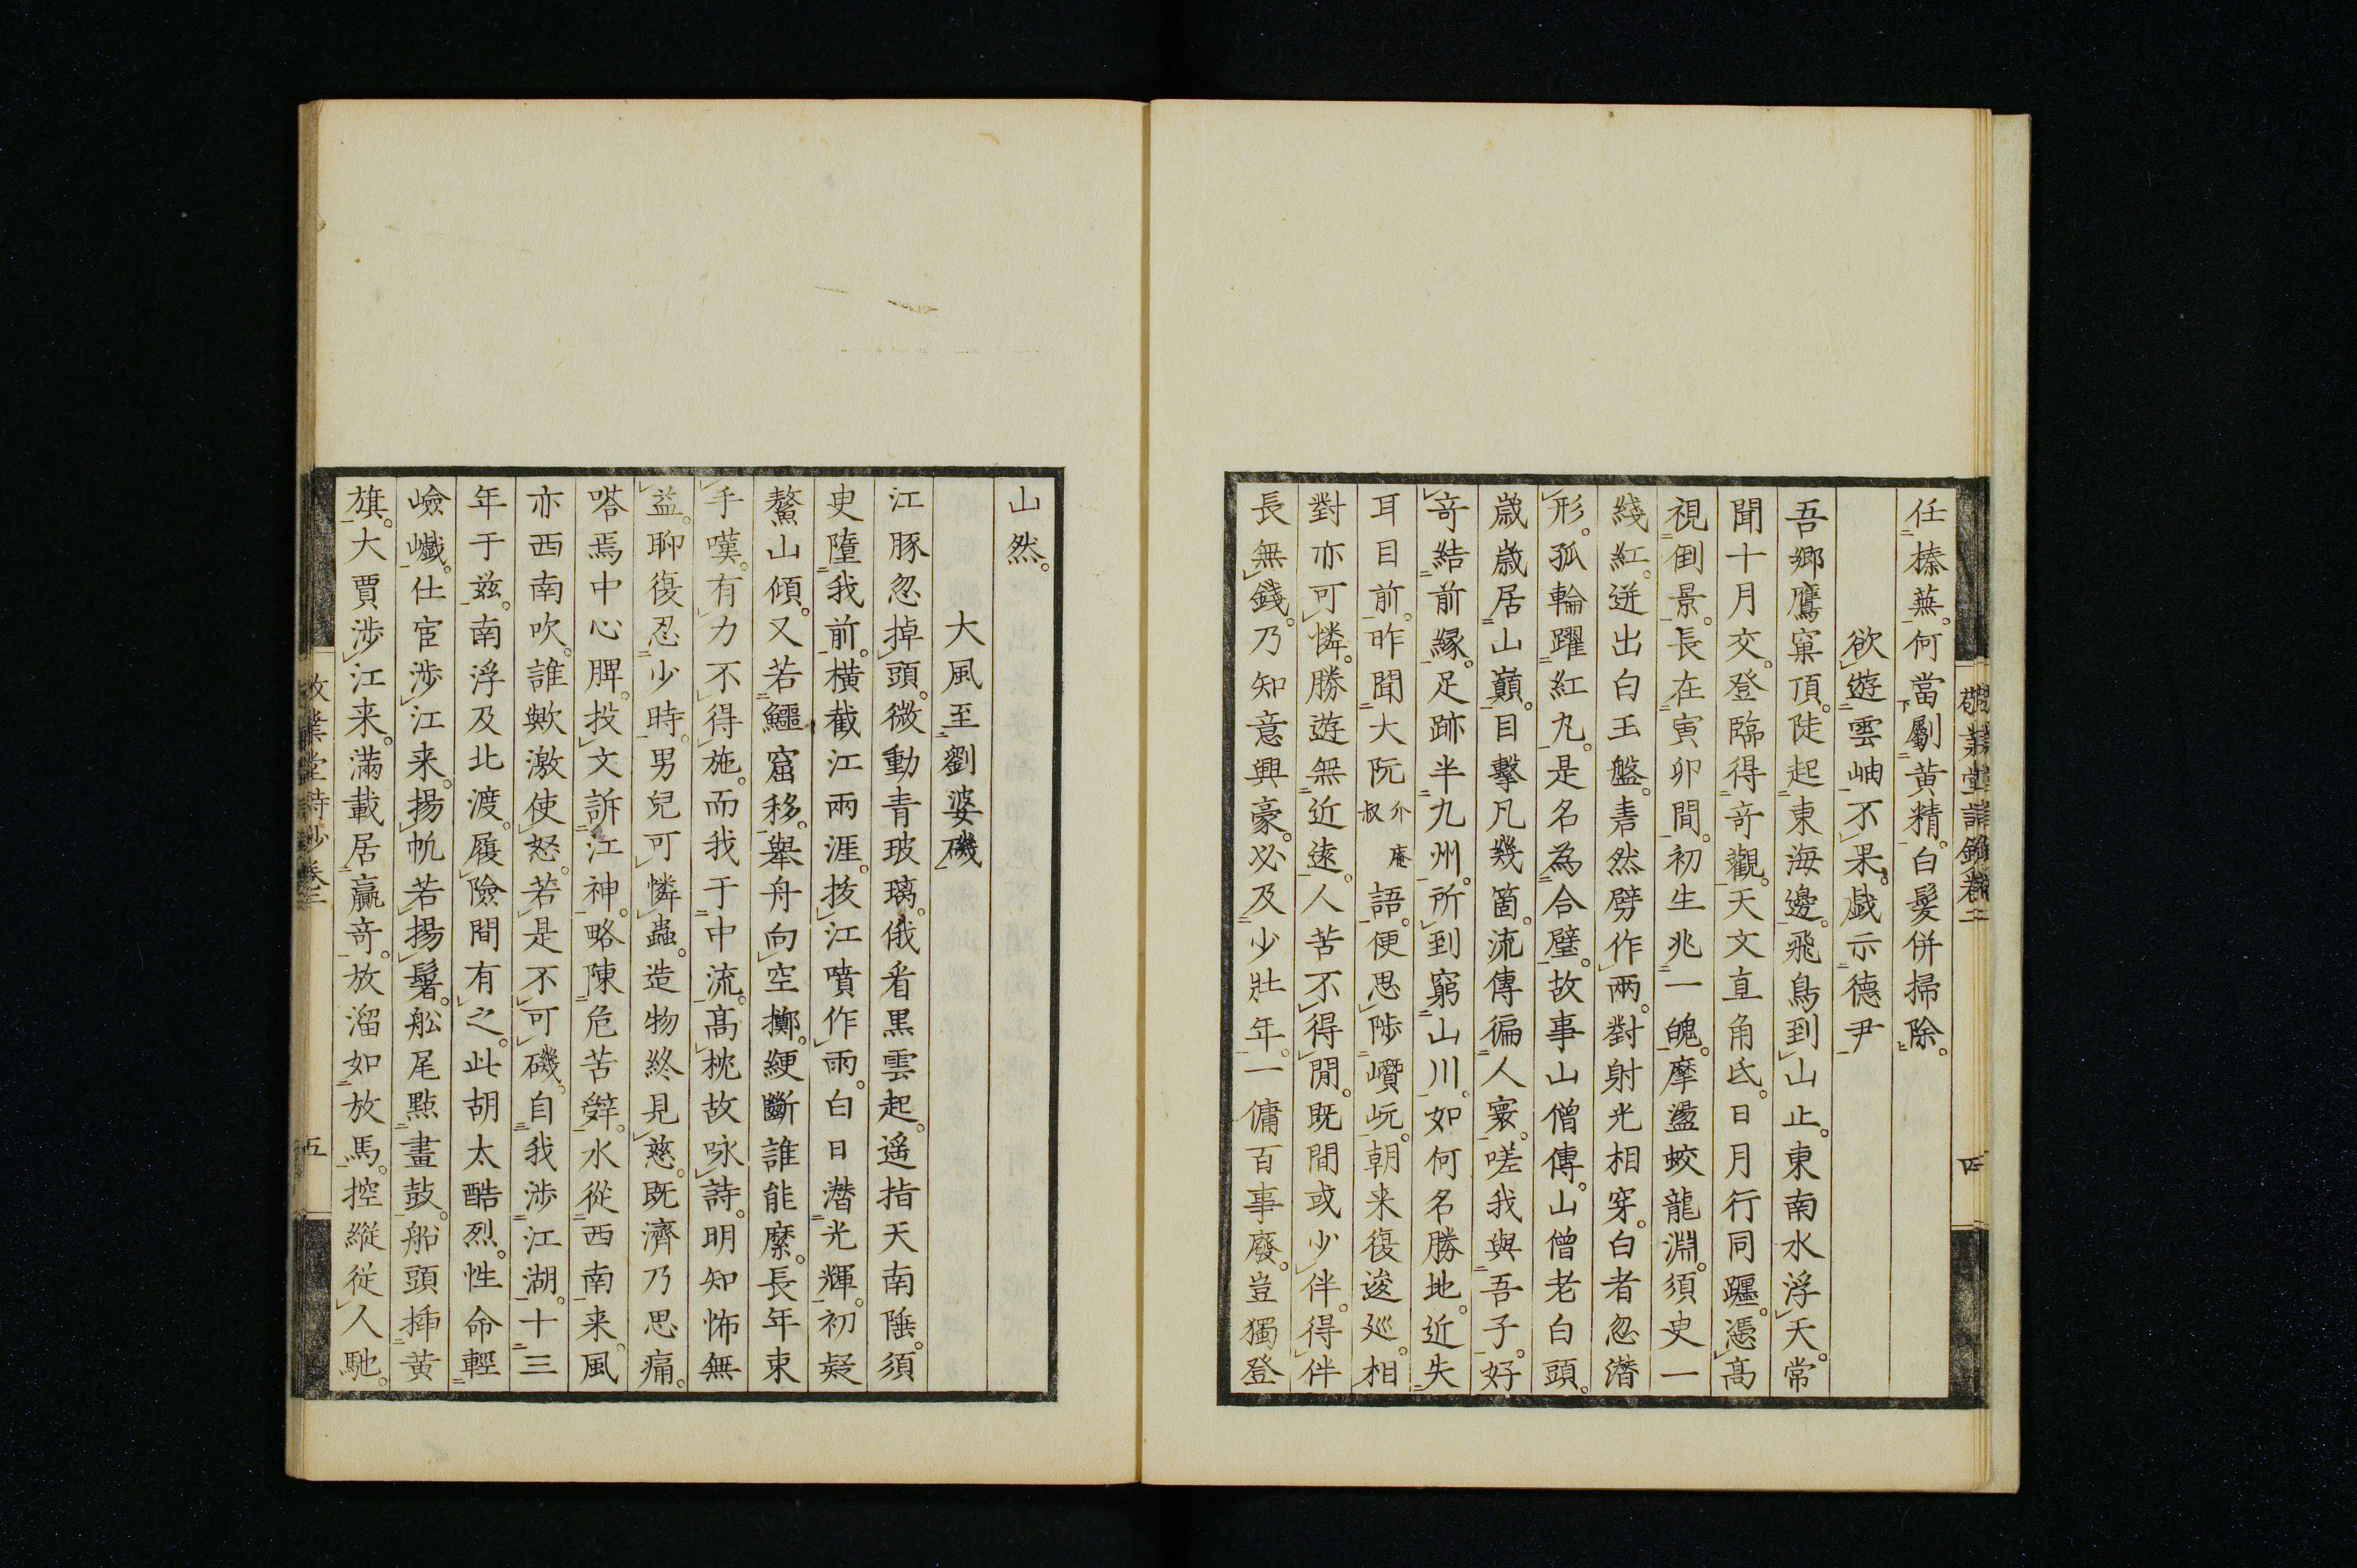 任榛蕪。何當劚黃精。白髮併掃除。
欲遊雲岫不果。戲示德尹
吾鄉鷹窠頂。陡起東海邊。飛鳥到山止。東南水浮天。常
聞十月交。登臨得竒觀。天文直角氐。日月行同躔。憑髙
視倒景。長在寅卯間。初生兆一魄。摩盪蛟龍淵。須臾一
綫紅。迸出白玉盤。砉然劈作兩。對射光相穿。白者忽潛
形。孤輪躍紅丸。是名為合璧。故事山僧傳。山僧老白頭。
歲歲居山巔。目擊凡幾箇。流傳徧人寰。嗟我與吾子。好
竒結前緣。足跡半九州。所到窮山川。如何名勝地。近失
耳目前。昨聞大阮介庵叔語。便思陟巑岏。朝来復逡廵。相
對亦可憐。勝遊無近遠。人苦不得閒。既間或少伴。得伴
長無錢。乃知意興豪。必及少壯年。一傭百事廢。豈獨登
敬業堂詩鈔卷二
四
山然。
大風至劉婆磯
江豚忽掉頭。微動青玻璃。俄看黒雲起。遥指天南陲。須
臾墮我前。橫截江兩涯。拔江噴作雨。白日潛光輝。初疑
鰲山傾。又若鱷窟移。舉舟向空擲。綆斷誰能縻。長年束
手嘆。有力不得施。而我于中流。髙枕故咏詩。明知怖無
益。聊復忍少時。男兒可憐蟲。造物終見慈。既濟乃思痛。
嗒焉中心脾。投文訴江神。略陳危苦辤。水從西南来。風
亦西南吹。誰歟激使怒。若是不可磯。自我涉江湖。十三
年于兹。南浮及北渡。履險間有之。此胡太酷烈。性命輕
嶮巇。仕宦涉江来。揚帆若揚鬐。舩尾點畫鼓。船頭揷黃
旗。大賈涉江来。滿載居贏竒。放溜如放馬。控縱從人馳。
敬業堂詩鈔卷二
五